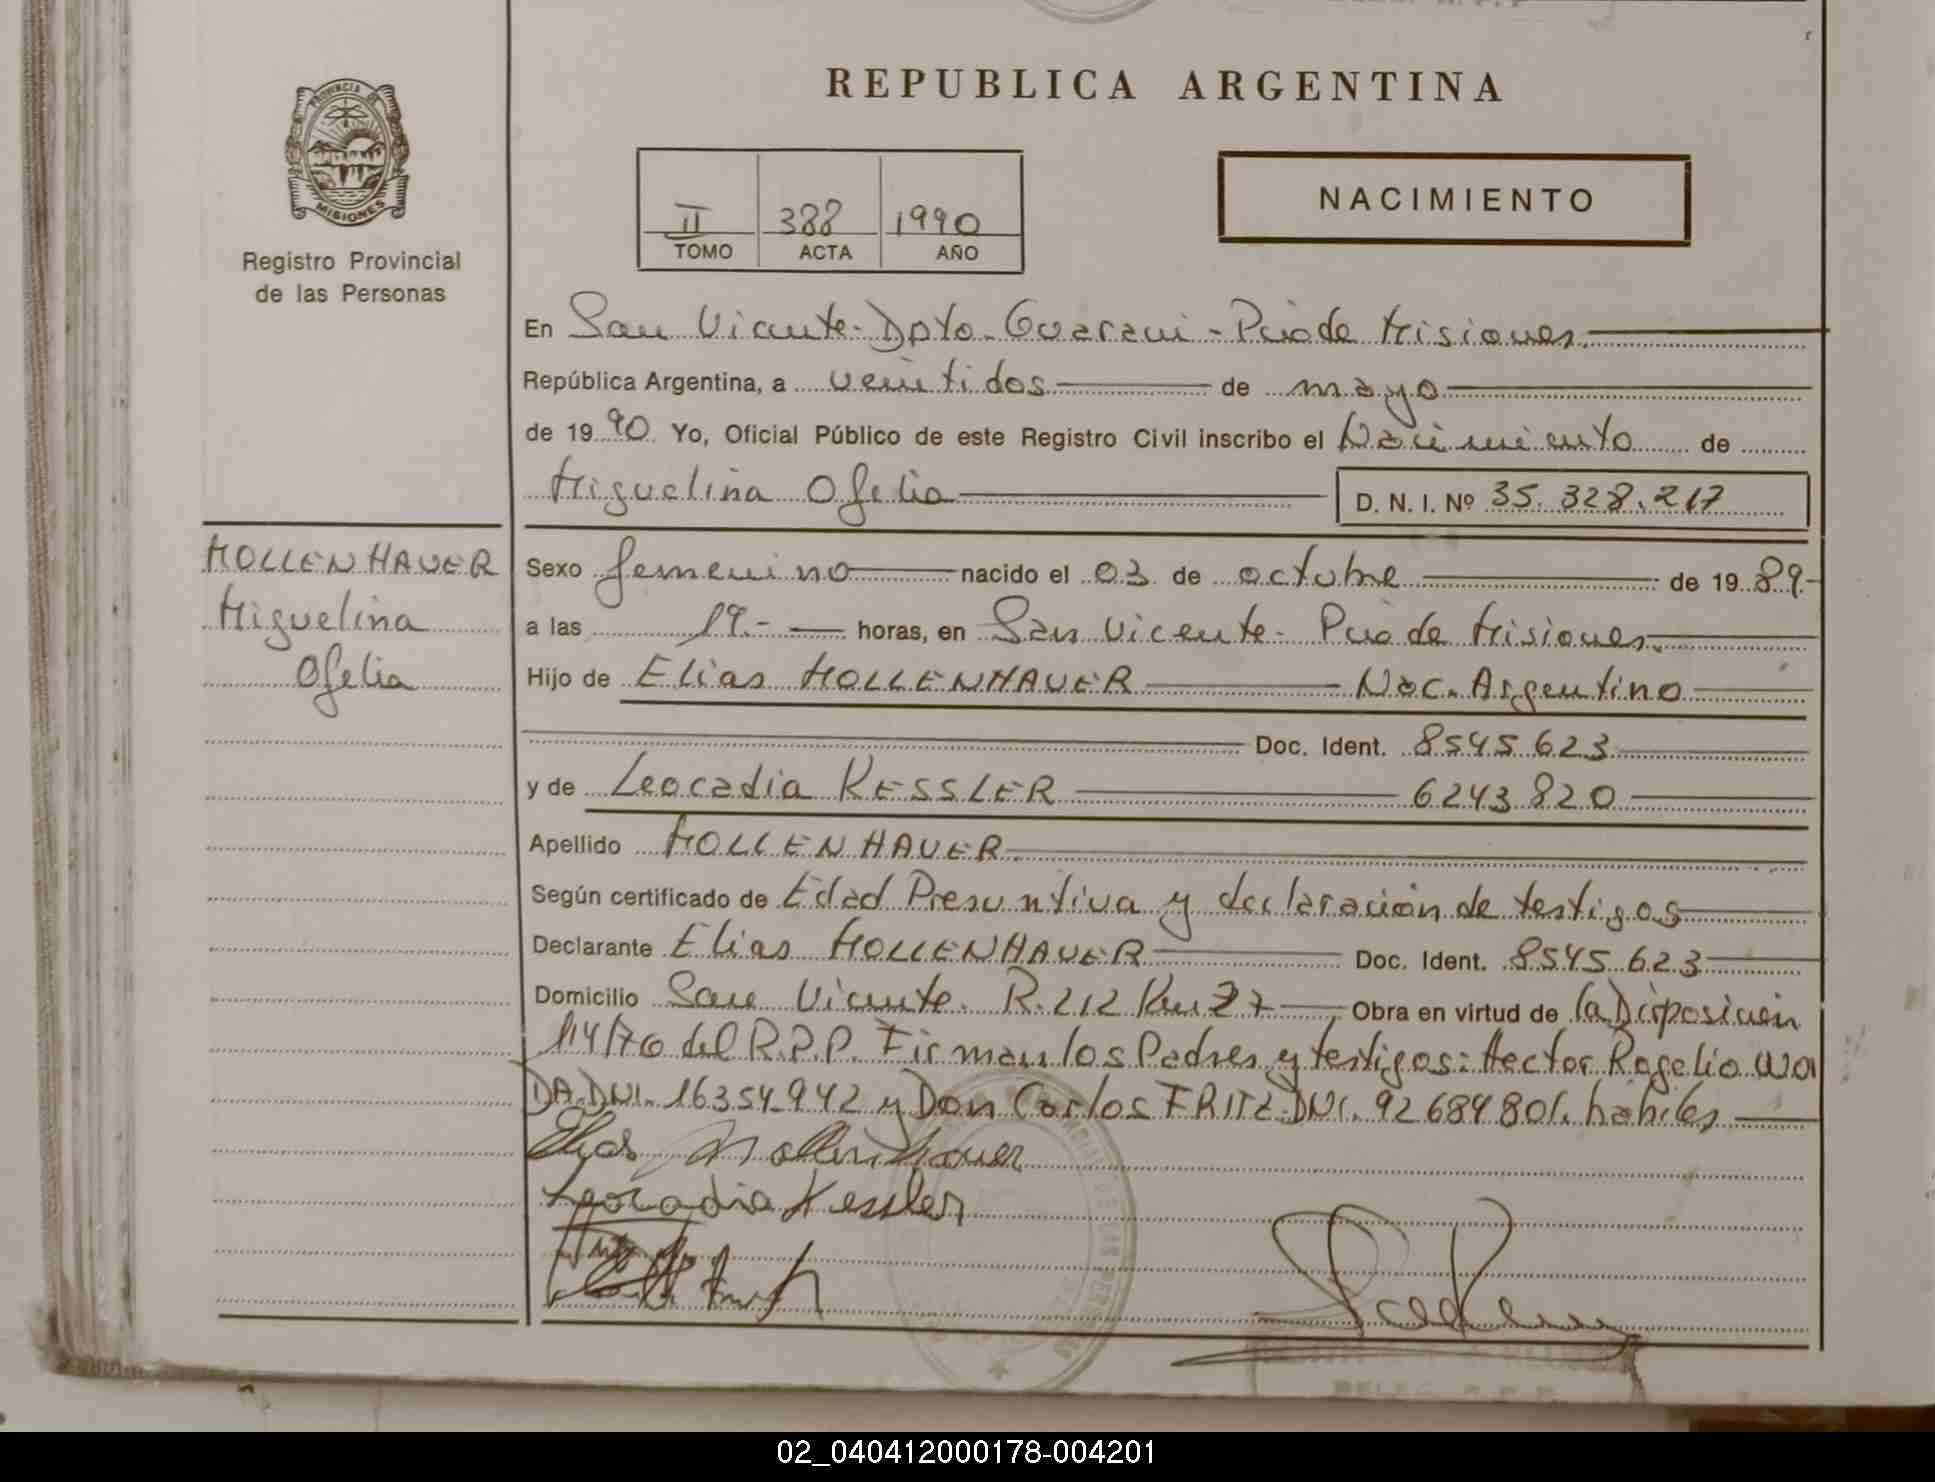 REPUBLICA ARGENTINA
PROVINCIA DE
MISIONES
Registro Provincial
de las Personas
II 388 1990
TOMO ACTA AÑO
NACIMIENTO
En San Vicente-Dpto. Guarani-Pcia de Misiones.
República Argentina, a veintidos de mayo
de 1990 Yo, Oficial Público de este Registro Civil inscribo el Nacimiento de
Miguelina Ofelia D. N. I. Nº 35.328.217
MOLLENHAUER
Miguelina
Ofelia
Sexo femenino nacido el 03 de octubre de 1989.-
a las 19.- horas, en San Vicente- Pcia de Misiones.
Hijo de Elias MOLLENHAUER Nac. Argentino
Doc. Ident. 8545623
y de Leocadia KESSLER 6243820
Apellido MOLLENHAUER.
Según certificado de Edad Presuntiva y declaración de testigos
Declarante Elias MOLLENHAUER Doc. Ident. 8545623
Domicilio San Vicente. R.212 Km 27 Obra en virtud de la Disposición
114/76 del R.P.P. Firman los Padres y testigos: Hector Rogelio WOI
DA.DNI. 16354942 y Don Carlos FRITZ.DNI. 92684801. habiles
Elias Mollenhauer
Leocadia Kessler
02_040412000178-004201